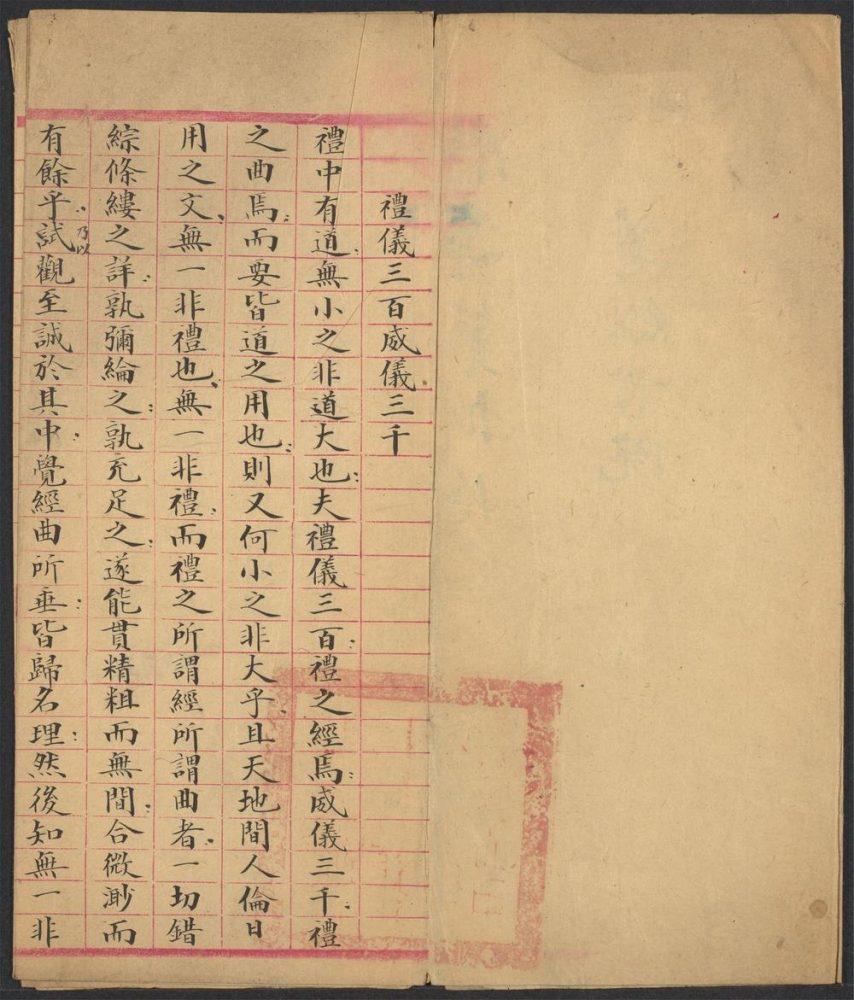 禮儀三百威儀三千
禮中有道無小之非道大也夫禮儀三百禮之經焉威儀三千禮
之曲焉而要皆道之用也則又何小之非大乎且天地間人倫日
用之文無一非禮也無一非禮而禮之所謂經所謂曲者一切錯
綜條縷之詳孰彌綸之孰充足之遂能貫精粗而無間合微渺而
有餘乎乃以試觀至誠於其中覺經曲所垂皆歸名理然後知無一非